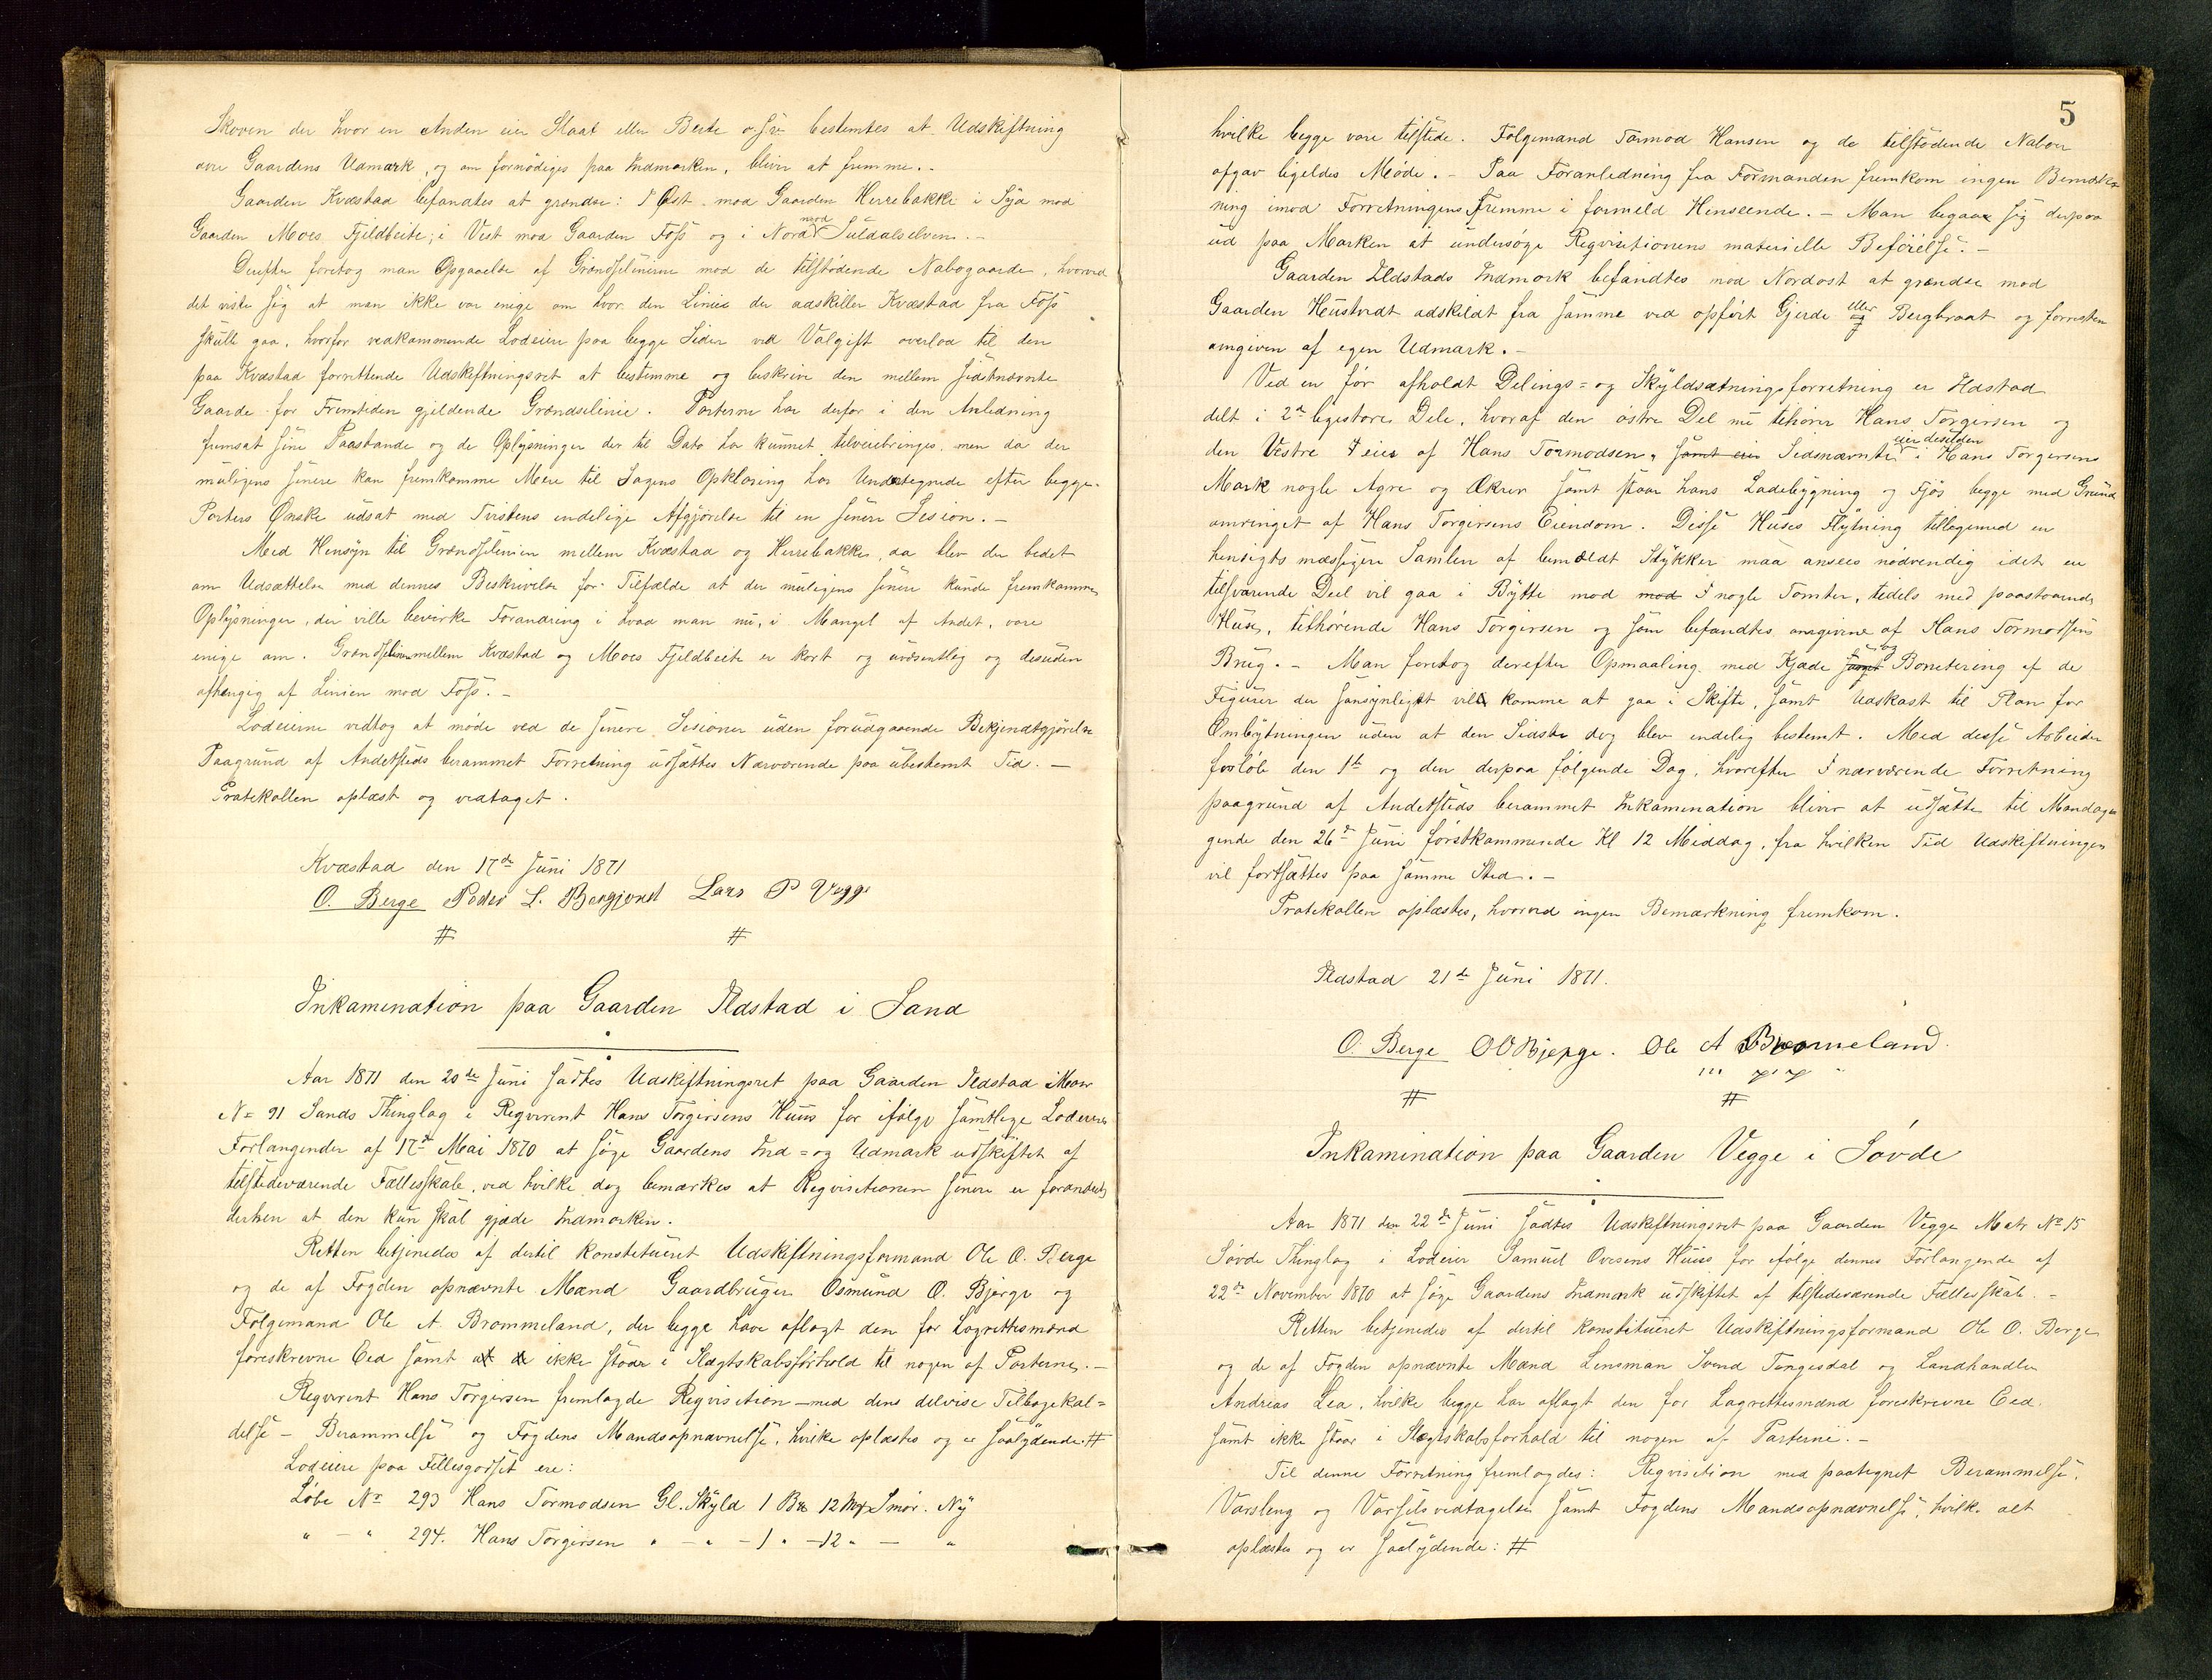 Skoven der hvor en Anden eier Slaat eller Beite ogsaa bestemtes at Udskiftning
over Gaardens Udmark, og om fornødiges paa Indmarken, bliver at fremme.-
Gaarden Kvæstad befandtes at grændse: I Øst mod Gaarden Herrebakke i Syd mod
Gaarden Moes Fjeldbeite; i Vest mod Gaarden Foss og i Nord mod Suldalselven.-
Derefter foretog man Opgaaelse af Grændselinierne mod de tilstødende Nabogaarde, hvorved
det viste sig at man ikke var enige om hvor den Linie der adskiller Kvæstad fra Foss
skulle gaa, hvorfor vedkommende Lodeiere paa begge Sider ved Valgift overlod til den
paa Kvæstad forrettende Udskiftningsret at bestemme og beskrive den mellem sidstnævnte
Gaarde for Fremtiden gjeldende Grændselinie. Parterne har derfor i den Anledning
fremsat sine Paastande og de Oplysninger der til Dato har kunnet tilveiebringes, men da der
muligens senere kan fremkomme Mere til Sagens Opklaring har Undertegnede efter begge
Parters Ønske udsat med Tvistens endelige Afgjørelse til en senere Sesion.-
Med Hensyn til Grændselinien mellem Kvæstad og Herrebakke, da blev der bedet
om Udsættelse med dennes Beskrivelse for Tilfælde at der muligens senere kunde fremkomme
Oplysninger, der ville bevirke Forandring i hvad man nu, i Mangel af Andet, vare
enige om. Grændselinien mellem Kvæstad og Moes Fjeldbeite er kort og uvæsentlig og desuden
afhængig af Linien mod Foss.-
Lodeierne vedtog at møde ved de senere Sesioner uden forudgaaende Bekjendtgjørelse
Paagrund af Andetsteds berammet Forretning udsættes Nærværende paa ubestemt Tid.-
Protokollen oplæst og vedtaget.
Kvæstad den 17de Juni 1871
O. Berge Peder L. Bergjord Lars P Vegge
# #
Inkamination paa Gaarden Ildstad i Sand
Aar 1871 den 20de Juni sattes Udskiftningsret paa Gaarden Ildstad Matr
No 91 Sands Thinglag i Reqvirent Hans Torgersens Huus for ifølge samtlige Lodeieres
Forlangender af 17de Mai 1870 at søge Gaardens Ind- og Udmark udskiftet af
tilstedeværende Fællesskab, ved hvilke dog bemærkes at Reqvisitionen senere er forandret
derhen at den kun skal gjælde Indmarken.
Retten betjenedes af dertil konstitueret Udskiftningsformand Ole O. Berge
og de af Fogden opnævnte Mænd Gaardbruger Osmund O. Bjerge og
Følgemand Ole A. Brommeland, der begge have aflagt den for Lagrettesmænd
foreskrevne Eed samt ikke staar i Slægtskabsforhold til nogen af Parterne.-
Reqvirent Hans Torgersen fremlagde Reqvisition - med dens delvise Tilbagekal=
delse - Berammelse og Fogdens Mandsopnævnelse, hvilke oplæstes og er saalydende: #
Lodeiere paa Fellesgodset ere:
Løbe No 293 Hans Tormodsen Gl. Skyld 1 Bx 12 Mx Smør. Ny
" - " 294. Hans Torgersen " - " - 1 " - 12 " - "
5
hvilke begge vare tilstede. Følgemand Tormod Hansen og de tilstødende Naboer
afgav ligeldes Møde.- Paa Foranledning fra Formanden fremkom ingen Bemærk
ning imod Forretningens Fremme i formeld Henseende.- Man begaav sig derpaa
ud paa Marken at undersøge Reqvisitionens materielle Beføielse.-
Gaarden Ildstads Indmark befandtes mod Nordost at grændse mod
Gaarden Heustvedt adskildt fra samme ved opført Gjerde eller Bergbraat og forresten
omgiven af egen Udmark.-
Ved en før afholdt Delings= og Skyldsætningsforretning er Ildstad
delt i 2de ligestore Dele, hvoraf den østre Del nu tilhører Hans Torgersen og
den Vestre I eies af Hans Tormodsen, samt eier Sidsnævnte eier desuden i Hans Torgersens
Mark nogle Agre og Ækrer samt staar hans Ladebygning og Fjøs begge med Grund
omringet af Hans Torgersens Eiendom. Disse Huses Flytning tilligemed en
hensigts mæssigere Samlen af bemeldt Stykker maa ansees nødvendig idet en
tilsvarende Deel vil gaa i Bytte mod mod I nogle Tomter, tildels med paastaaende
Huse, tilhørende Hans Torgersen og som befandtes omgivne af Hans Tormodsens
Brug.- Man foretog derefter Opmaaling med Kjæde og Bonetering af de
Figurer der sansynligst vil komme at gaa i Skifte, samt Udkast til Plan for
Ombytningen uden at den Sidste dog blev endelig bestemt. Med disse Arbeider
forløb den 1te og den derpaa følgende Dag, hvorefter I nærværende Forretning
paagrund af Andetsteds berammet Inkamination bliver at udsætte til Mandagen
den 26de Juni førstkommende Kl 12 Middag, fra hvilken Tid Udskiftningen
vil fortsættes paa samme Sted.-
Protokollen oplæstes, hvorved ingen Bemærkning fremkom.
Ildstad 21de Juni 1871.
O. Berge OOBjerge. Ole A Brommeland.
# #
Inkamination paa Gaarden Vegge i Søvde
Aar 1871 den 22de Juni sadtes Udskiftningsret paa Gaarden Vegge Matr No 15
Søvde Thinglag i Lodeier Samuel Ovesens Huus for ifølge dennes Forlangende af
22de November 1870 at søge Gaardens Indmark udskiftet af tilstedeværende Fællesskab.-
Retten betjenedes af dertil konstitueret Udskiftningsformand Ole O. Berge
og de af Fogden opnævnte Mænd Lensmand Svend Tengesdal og Landhandler
Andreas Lea, hvilke begge har aflagt den for Lagrettesmænd foreskrevne Eed
samt ikke staar i Slægtskabsforhold til nogen af Parterne.-
Til denne Forretning fremlagdes: Reqvisition med paategnet Berammelse,
Varsling og Varselsvedtagelse samt Fogdens Mandsopnævnelse, hvilke alt
oplæstes og er saalydende: #